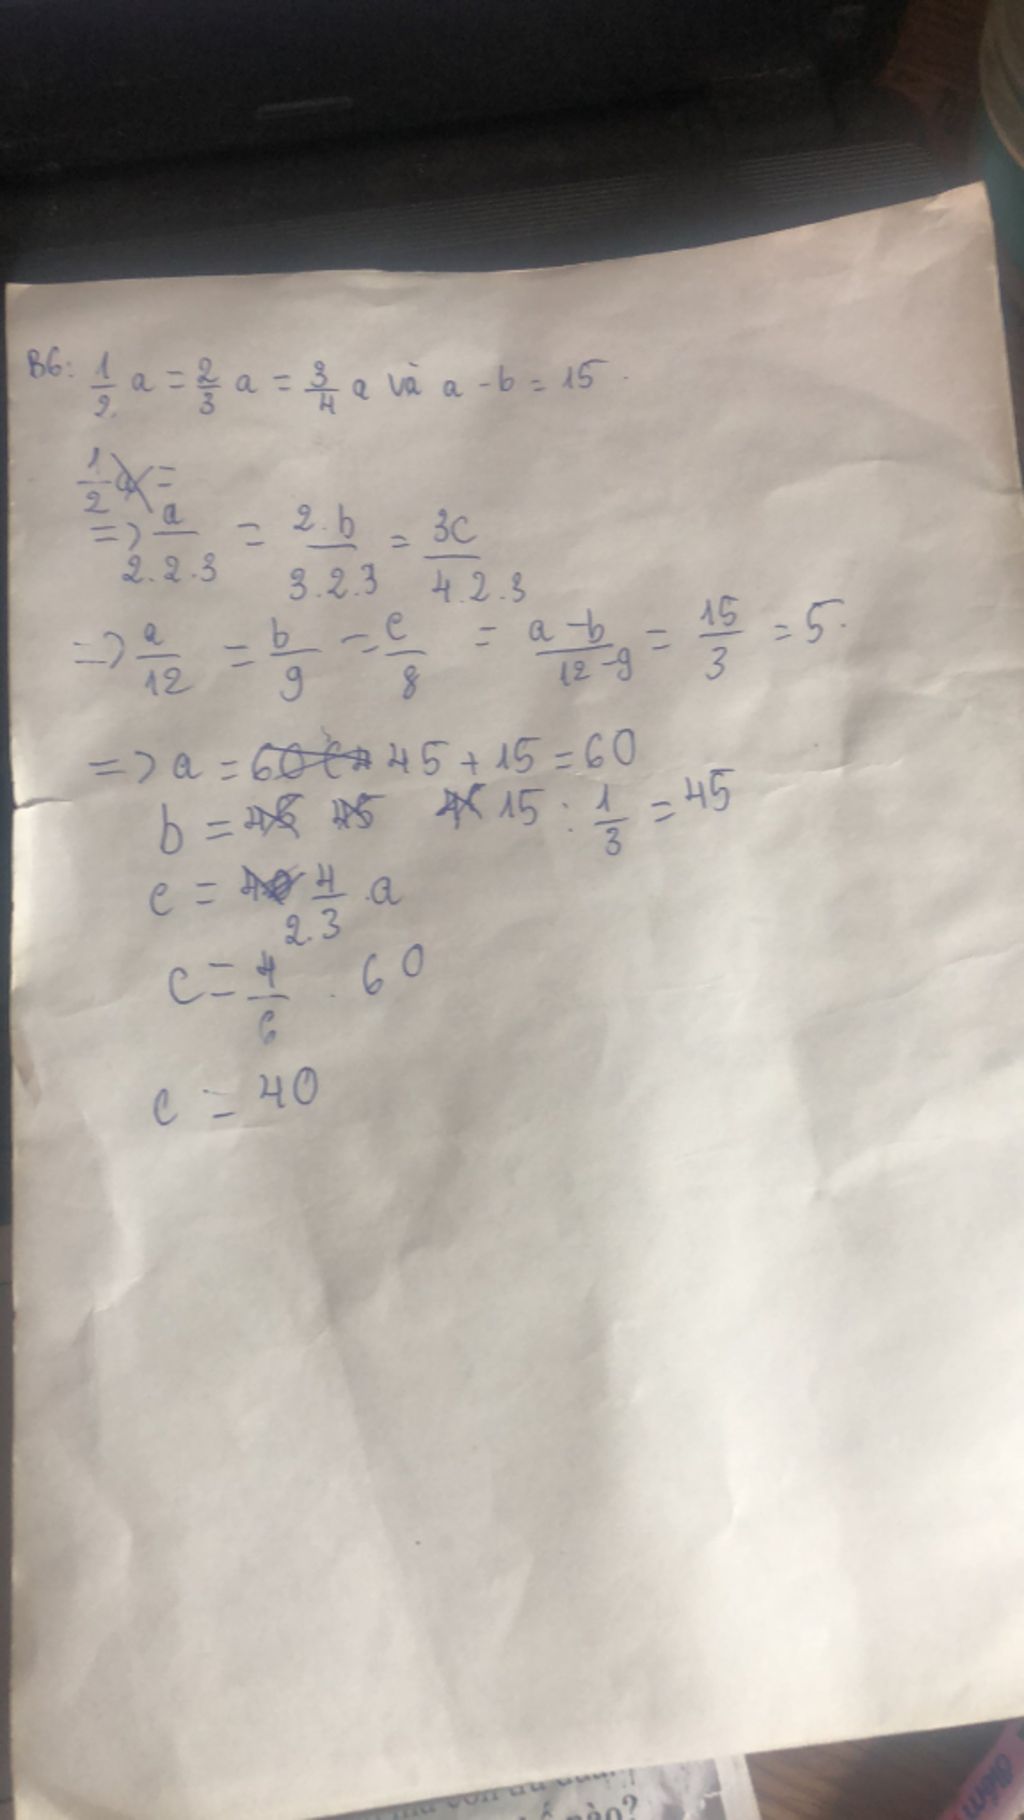 B6: 1/2 a = 2/3 a = 3/4 a và a - b = 15.
1/2 a =
=> a/2.2.3 = 2.b/3.2.3 = 3c/4.2.3
=> a/12 = b/9 = c/8 = a-b/12-9 = 15/3 = 5.
=> a = 60 45 + 15 = 60
b = 45 45 45 15 : 1/3 = 45
c = 40 4/2.3 .a
c = 4/6 . 60
c = 40
nào?